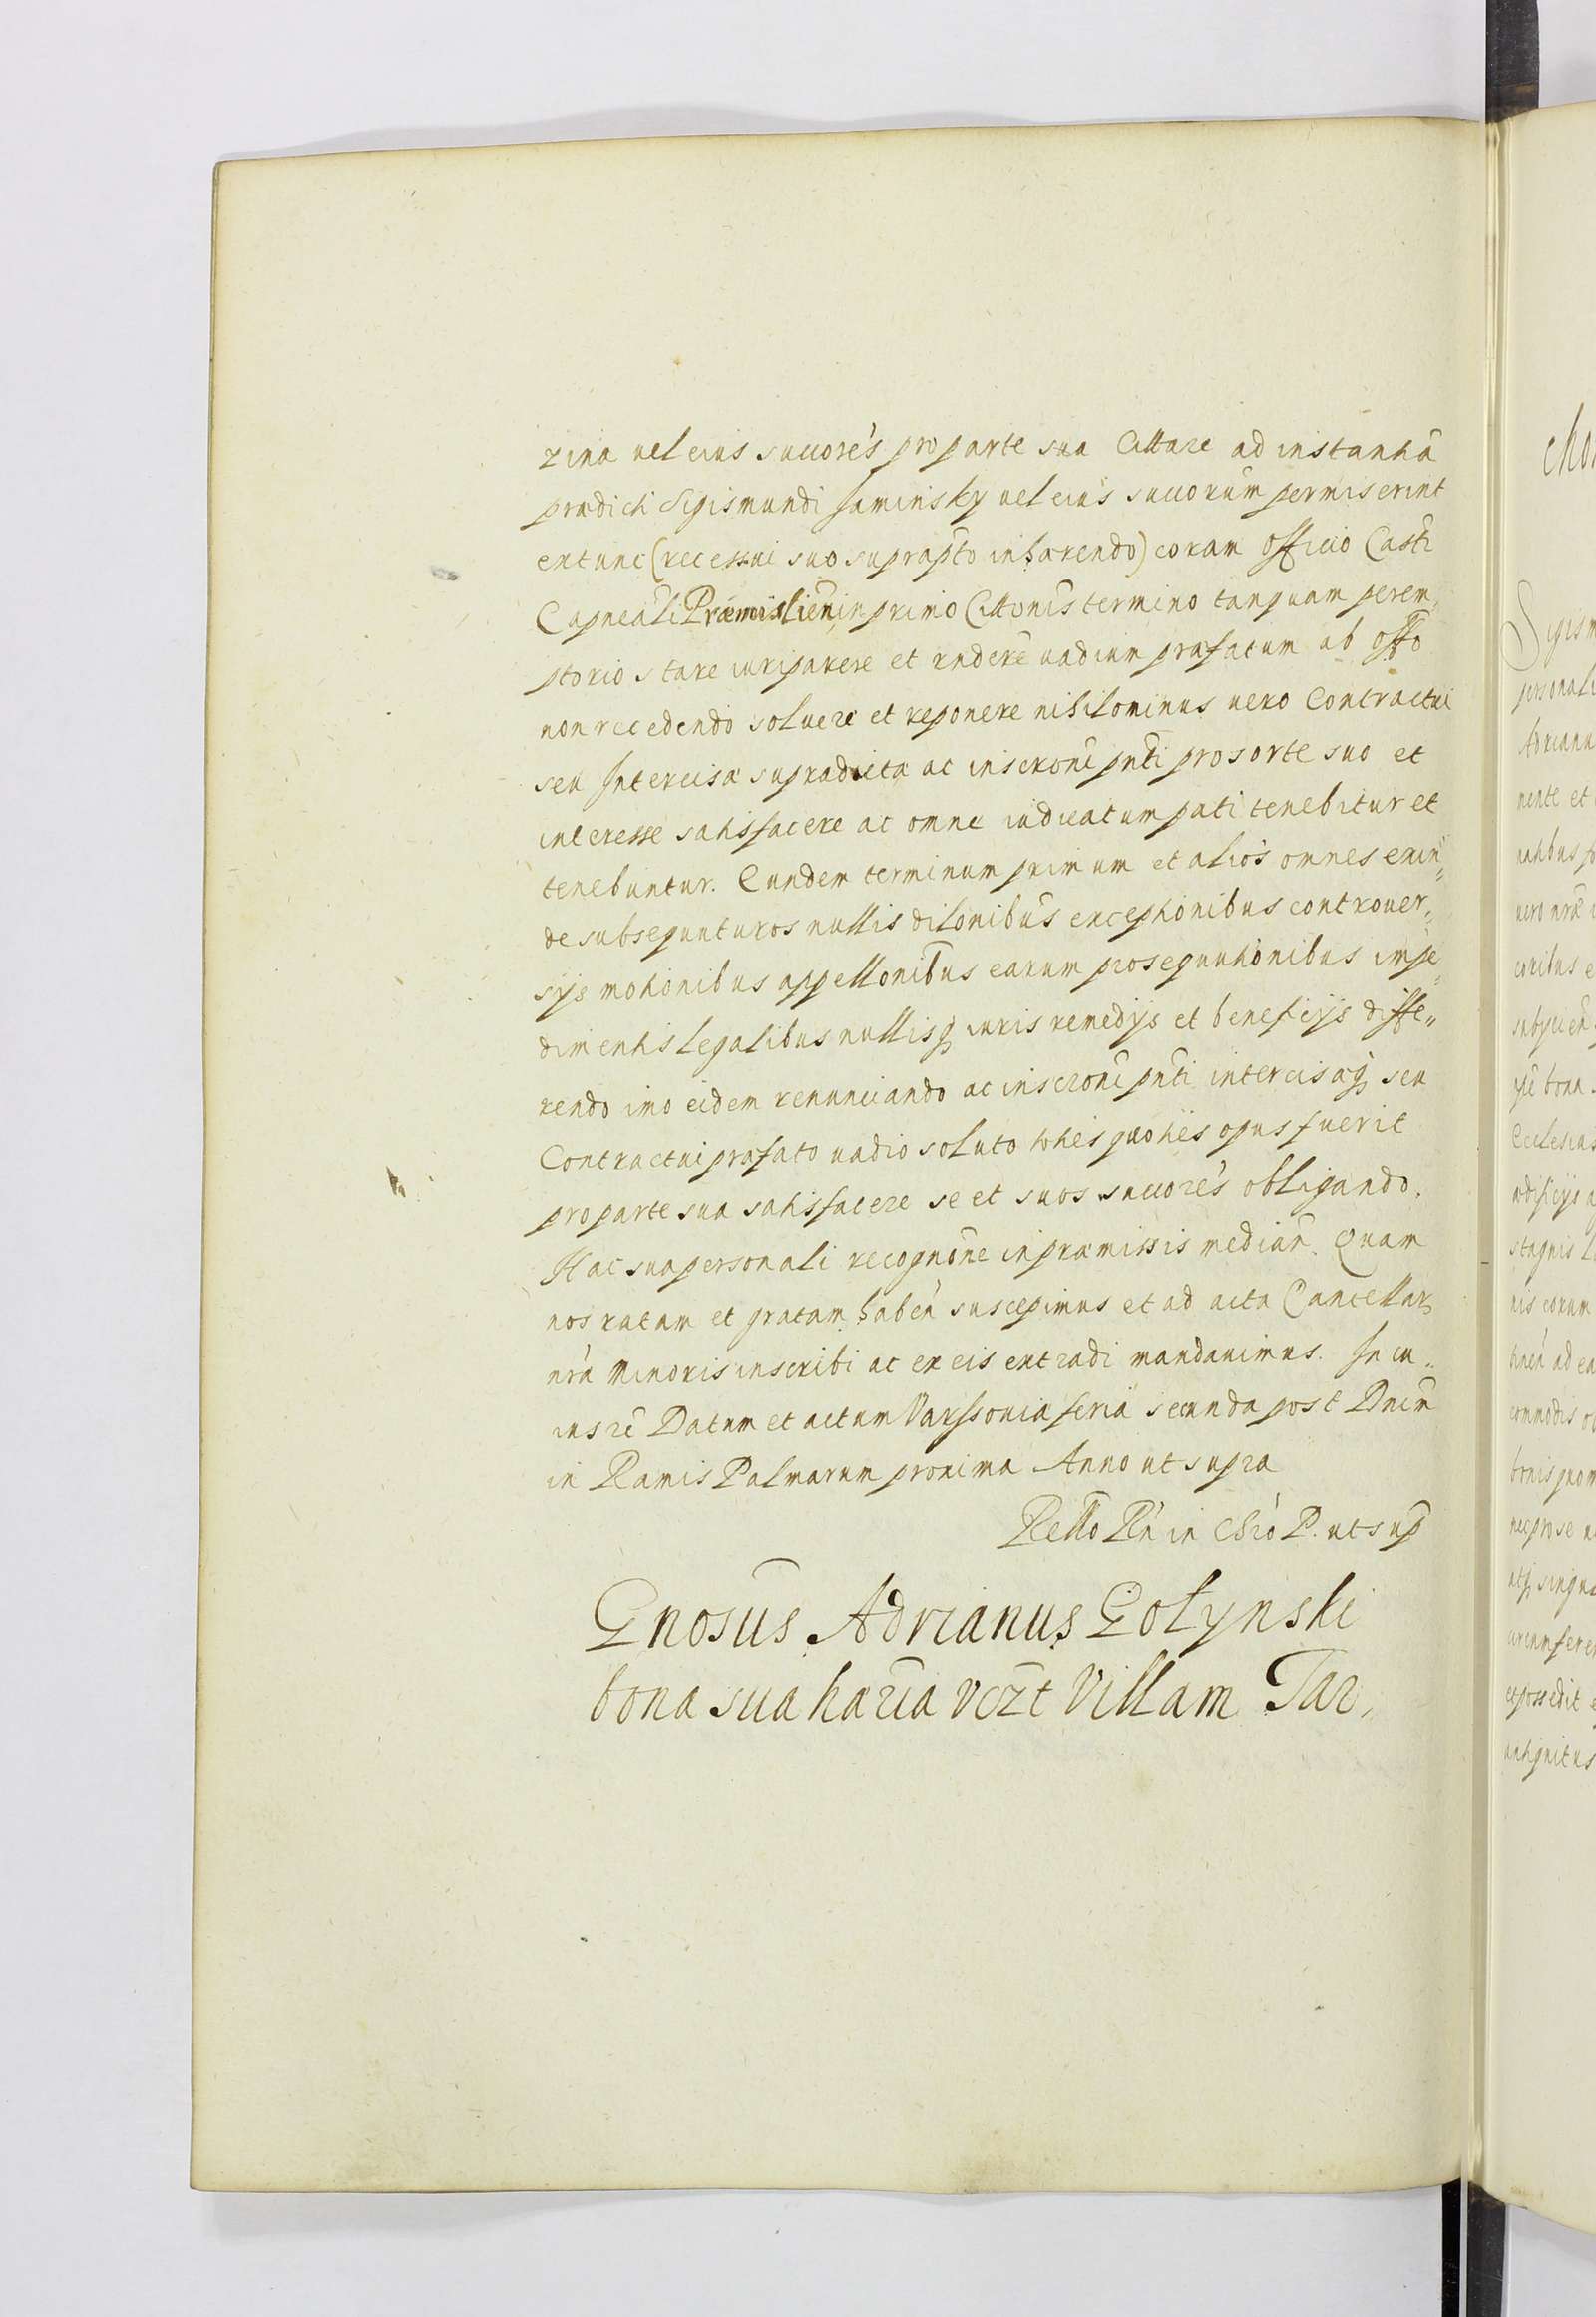 zina vel eius succorēs pro parte sua Cittare ad instantiā
prædicti Sigismundi Jaminsky vel eius succorūm permiserint
extunc (recessui suo suprapto inhærendo) coram officio Casti
Capneali Præmisliēn in primo Cittonis termino tanquam perem,
ptorio stare iuri parere et rndere vadium præfatum ab offo
non recedendo solvere et reponere nihilominus vero Contractui
seu Intercisæ supradictæ ac inscroni pnti pro sorte sua et
interesse satisfacere ac omne iudicatum pati tenebitur et
tenebuntur. Eundem terminum primum et alios omnes exin„
de subsequuturos nullis dilonibus exceptionibus controver„
sÿs motionibus appellonibus earum prosequutionibus impe„
dimentis legalibus nullisq iuris remedÿs et beneficÿs diffe„
rendo imo eidem renunciando ac inscroni pnti intercisæq seu
Contractui præfato vadio soluto toties quoties opus fuerit
pro parte sua satisfacere se et suos succorēs obligando.
Hac sua personali recognōne in præmissis mediañ. Quam
nos ratam et gratam habeñ suscepimus et ad acta Cancellar
nræ Minoris inscribi ac ex eis extradi mandavimus. In cu„
ius re Datum et actum Varssoviæ feria secunda post Dnicm
in Ramis Palmarum proxima Anno ut supra
Rello Rñ in Chro P. ut sup
Gnosus Adrianus Gołynski
bona sua hæria vczt Villam Tar,
chor
Sigism
personali
Adrianu
nente et
vero nræ
Ecclesias
ædificÿs a
stagnis
nis eorum
commodis